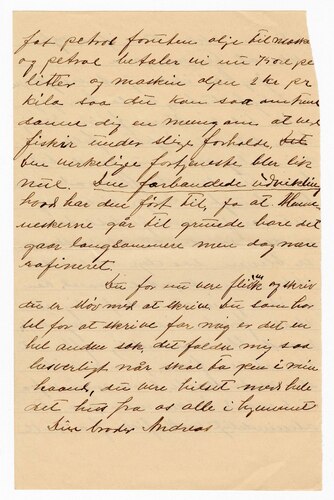 fat petrol foruten olje til maski
og petrol betaler vi nu 70 øre pr
litter og maskin oljen 2 kr pr
kilo saa du kan saa omtrent
danne dig en mening om at ved
fiskir under slige forholde,
den verkelige fortjeneste blir lik
nul. Den forbandede utvikling
hvad har den ført til, jo at Men
neskerne går til grunde bare det
gaar langsommere men dog mere
rafineret.
Du for nu vere flink og skriv
du er sløv med at skrive Du som har
let for at skrive for mig er det en
hel anden sak, det falder mig saa
besverligt når skal ta pen i min
haand, du vere hilset med hele
dit hus fra os alle i hjemmet
Din broder Andreas